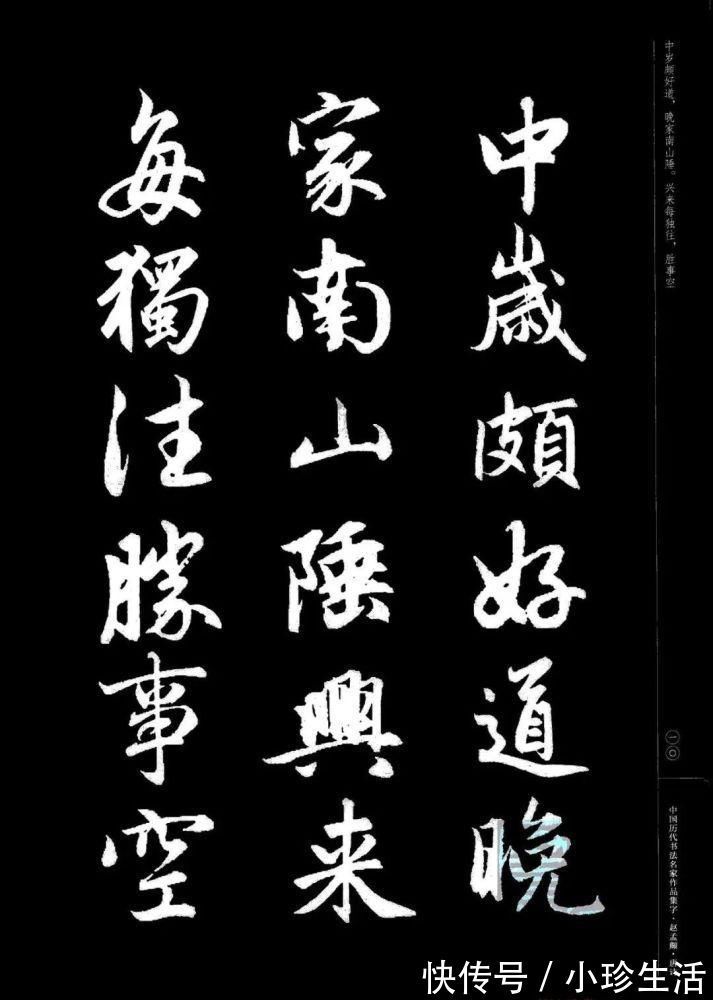 中歲頗好道晚
家南山陲興来
每獨往勝事空
中岁颇好道，晚家南山陲。兴来每独往，胜事空
一〇
中国历代书法名家作品集字·赵孟頫·
快传号/小珍生活